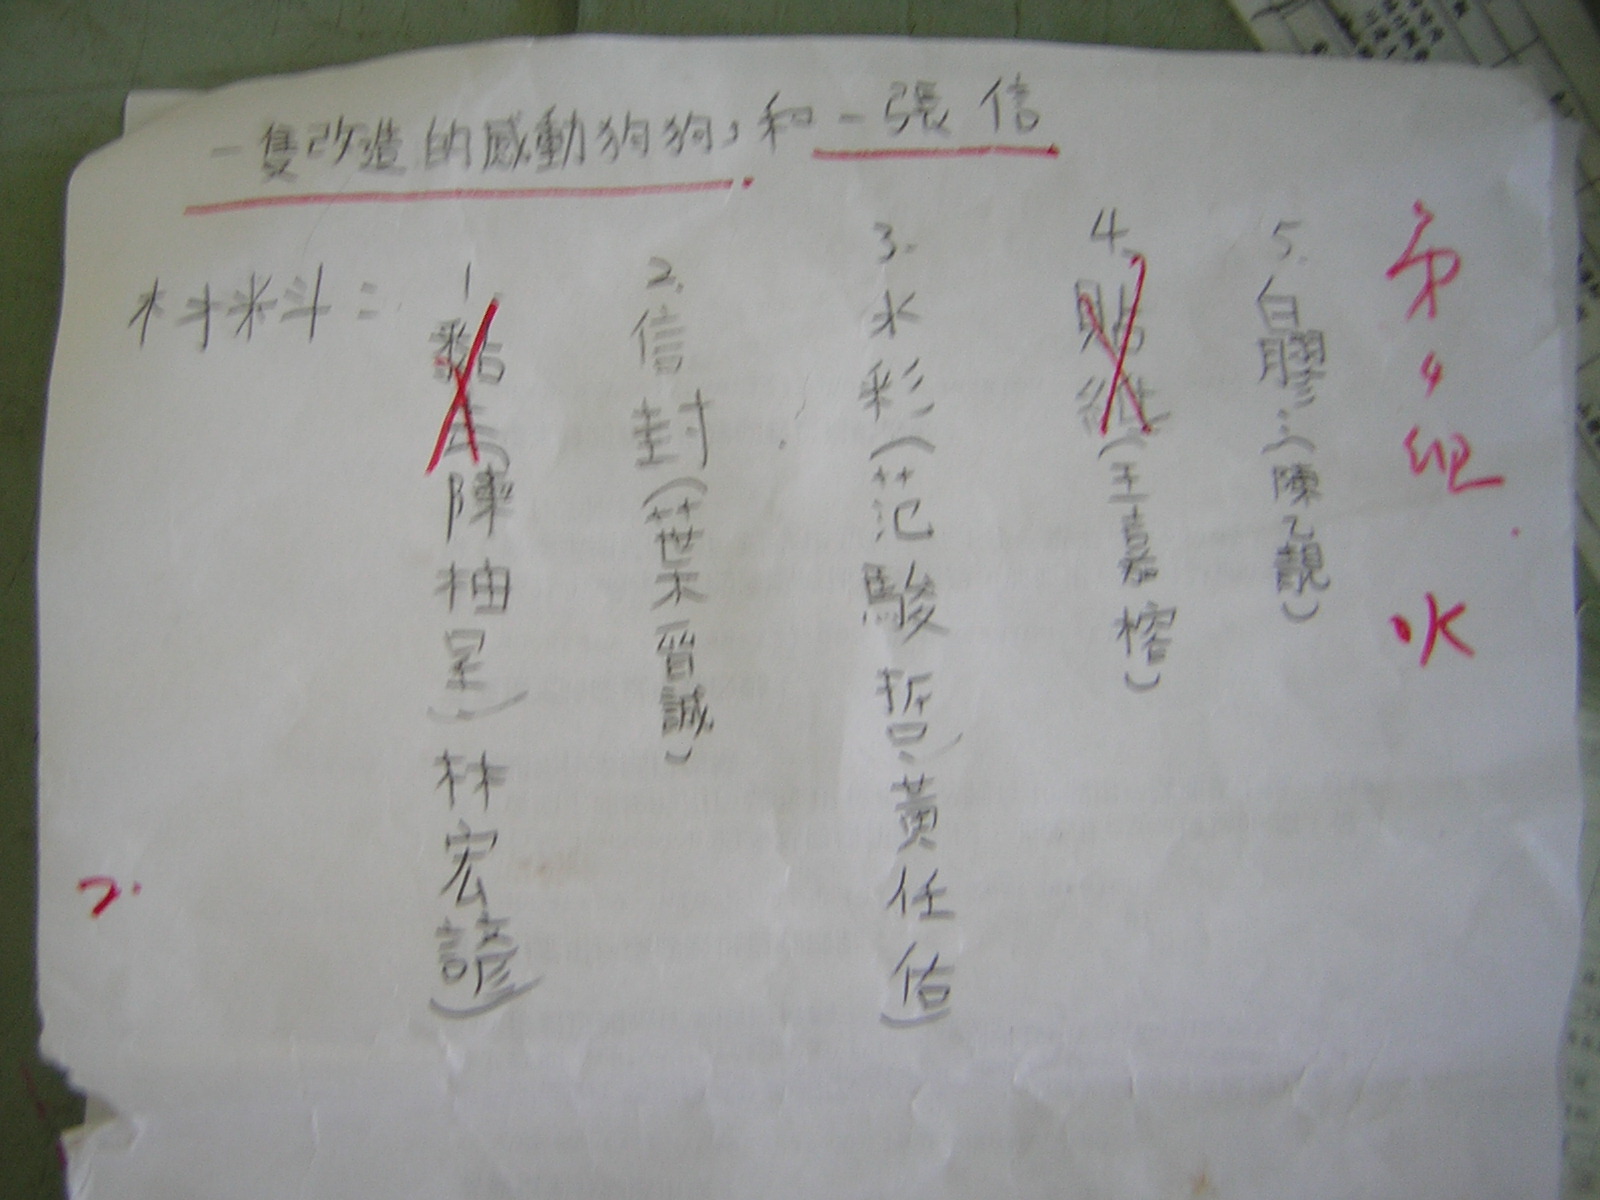 一隻改造的感動狗狗,和一張信
材料:
1.黏土(陳柚呈)(林宏諺)
2.信封(葉晉誠)
3.水彩(范駿哲)(黃任佑)
4.貼紙(王嘉榕)
5.白膠(陳乙靚)
第4組 火